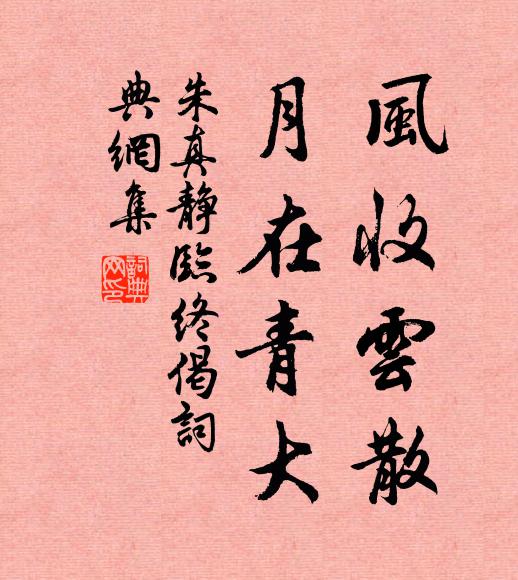 風收雲散
月在青大
朱真靜臨終偈詞
典網集
詞典網印